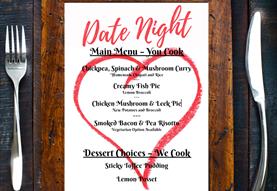 Date Night
Main Menu - You Cook
Chickpea, Spinach & Mushroom Curry
Homemade Chapati and Rice
Creamy Fish Pie
Lemon Broccoli
Chicken Mushroom & Leek Pie
New Potatoes and Broccoli
Smoked Bacon & Pea Risotto
Vegetarian Option Available
Dessert Choices - We Cook
Sticky Toffee Pudding
Lemon Posset